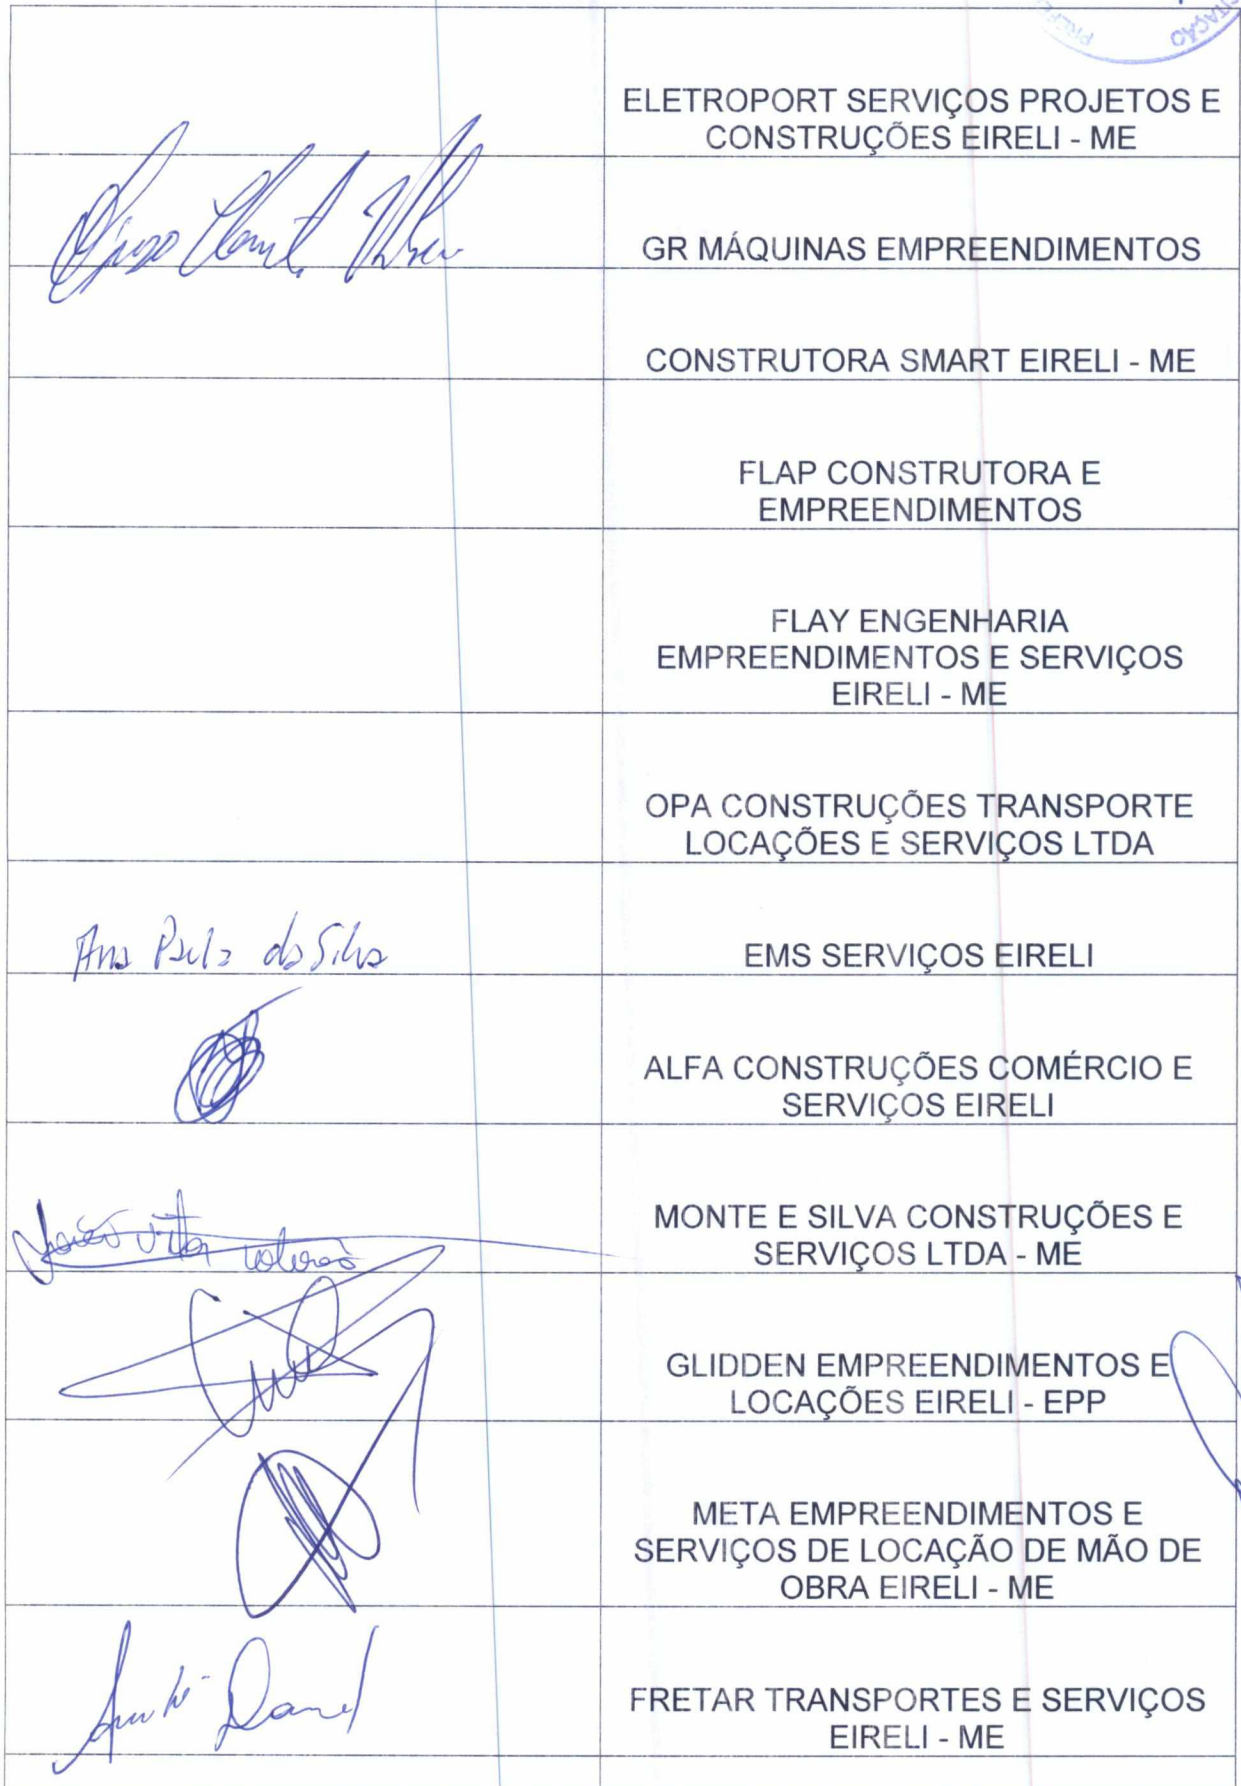 PREFE
ITAÇÃO
ELETROPORT SERVIÇOS PROJETOS E
CONSTRUÇÕES EIRELI - ME
GR MÁQUINAS EMPREENDIMENTOS
CONSTRUTORA SMART EIRELI - ME
FLAP CONSTRUTORA E
EMPREENDIMENTOS
FLAY ENGENHARIA
EMPREENDIMENTOS E SERVIÇOS
EIRELI - ME
OPA CONSTRUÇÕES TRANSPORTE
LOCAÇÕES E SERVIÇOS LTDA
Ana Paula da Silva
EMS SERVIÇOS EIRELI
ALFA CONSTRUÇÕES COMÉRCIO E
SERVIÇOS EIRELI
MONTE E SILVA CONSTRUÇÕES E
SERVIÇOS LTDA - ME
GLIDDEN EMPREENDIMENTOS E
LOCAÇÕES EIRELI - EPP
META EMPREENDIMENTOS E
SERVIÇOS DE LOCAÇÃO DE MÃO DE
OBRA EIRELI - ME
FRETAR TRANSPORTES E SERVIÇOS
EIRELI - ME